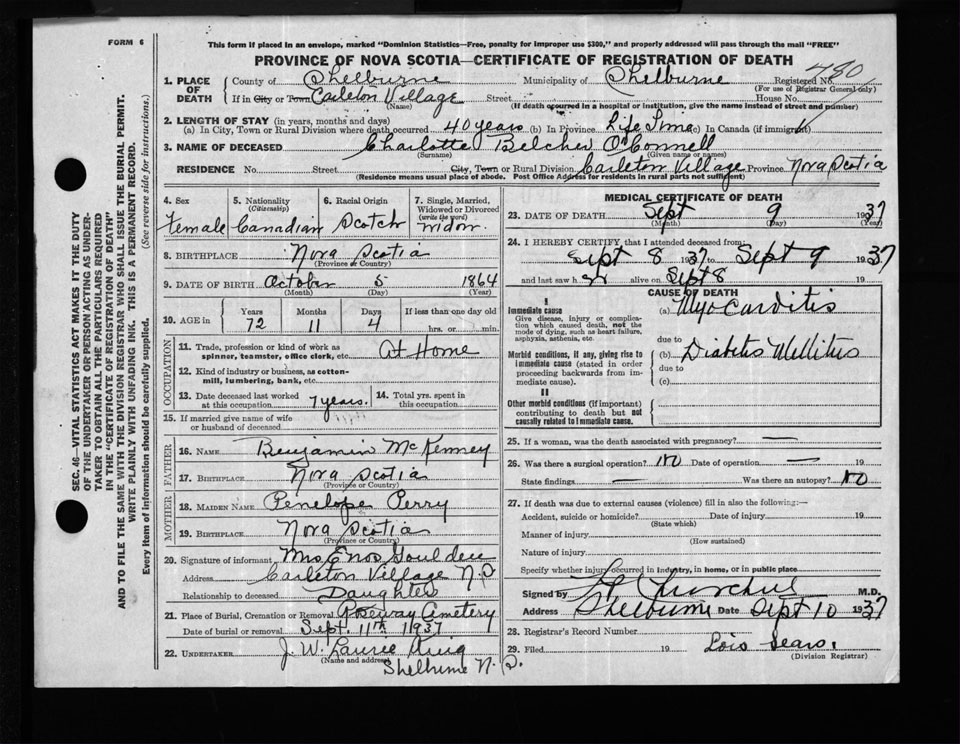 FORM 6
This form if placed in an envelope, marked "Dominion Statistics—Free, penalty for improper use $300," and properly addressed will pass through the mail "FREE"
PROVINCE OF NOVA SCOTIA—CERTIFICATE OF REGISTRATION OF DEATH
1. PLACE OF DEATH County of Shelburne Municipality of Shelburne Registered No. 480
(For use of Registrar General only)
If in City or Town Carleton Village Street House No.
(Name) (If death occurred in a hospital or institution, give the name instead of street and number)
2. LENGTH OF STAY (in years, months and days)
(a) In City, Town or Rural Division where death occurred 40 years (b) In Province Life Time (c) In Canada (if immigrant)
3. NAME OF DECEASED Charlotte Belcher O'Connell
(Surname) (Given name or names)
RESIDENCE No. Street City, Town or Rural Division Carleton Village Province Nova Scotia
(Residence means usual place of abode. Post Office Address for residents in rural parts not sufficient)
4. Sex Female
5. Nationality (Citizenship) Canadian
6. Racial Origin Scotch
7. Single, Married, Widowed or Divorced (write the word) Widow.
8. BIRTHPLACE Nova Scotia
(Province or Country)
9. DATE OF BIRTH October 5 1864
(Month) (Day) (Year)
10. AGE in Years 72 Months 11 Days 4 If less than one day hrs. or min.
OCCUPATION
11. Trade, profession or kind of work as spinner, teamster, office clerk, etc. At Home
12. Kind of industry or business, as cotton-mill, lumbering, bank, etc.
13. Date deceased last worked at this occupation 7 years.
14. Total yrs. spent in this occupation
15. If married give name of wife or husband of deceased
FATHER
16. NAME Benjamin McKenney
17. BIRTHPLACE Nova Scotia
(Province or Country)
MOTHER
18. MAIDEN NAME Penelope Perry
19. BIRTHPLACE Nova Scotia
(Province or Country)
20. Signature of informant Mrs Enos Goulden
Address Carleton Village N.S.
Relationship to deceased Daughter
21. Place of Burial, Cremation or Removal Roseway Cemetery
Date of burial or removal Sept. 11th 1937
22. UNDERTAKER J. W. Laurie King
(Name and address) Shelburne N.S.
MEDICAL CERTIFICATE OF DEATH
23. DATE OF DEATH Sept 9 1937
(Month) (Day) (Year)
24. I HEREBY CERTIFY that I attended deceased from
Sept 8 1937 to Sept 9 1937
and last saw h er alive on Sept 8 19
CAUSE OF DEATH
I
Immediate cause (a) Myocarditis
Give disease, injury or complication which caused death, not the mode of dying, such as heart failure, asphyxia, asthenia, etc
due to
Morbid conditions, if any, giving rise to immediate cause (stated in order proceeding backwards from immediate cause). (b) Diabetes Mellitus
due to
(c)
II
Other morbid conditions (if important) contributing to death but not causally related to immediate cause.
25. If a woman, was the death associated with pregnancy? —
26. Was there a surgical operation? No Date of operation — 19
State findings — Was there an autopsy? No
27. If death was due to external causes (violence) fill in also the following:—
Accident, suicide or homicide? Date of injury 19
(State which)
Manner of injury
(How sustained)
Nature of injury
Specify whether injury occurred in industry, in home, or in public place
Signed by Churchill M.D.
Address Shelburne Date Sept 10 1937
28. Registrar's Record Number
29. Filed 19 Lois Sears.
(Division Registrar)
SEC. 46—VITAL STATISTICS ACT MAKES IT THE DUTY
OF THE UNDERTAKER OR PERSON ACTING AS UNDER-
TAKER TO OBTAIN ALL THE PARTICULARS REQUIRED
IN THE "CERTIFICATE OF REGISTRATION OF DEATH"
AND TO FILE THE SAME WITH THE DIVISION REGISTRAR WHO SHALL ISSUE THE BURIAL PERMIT.
WRITE PLAINLY WITH UNFADING INK. THIS IS A PERMANENT RECORD.
Every item of information should be carefully supplied. (See reverse side for instructions.)